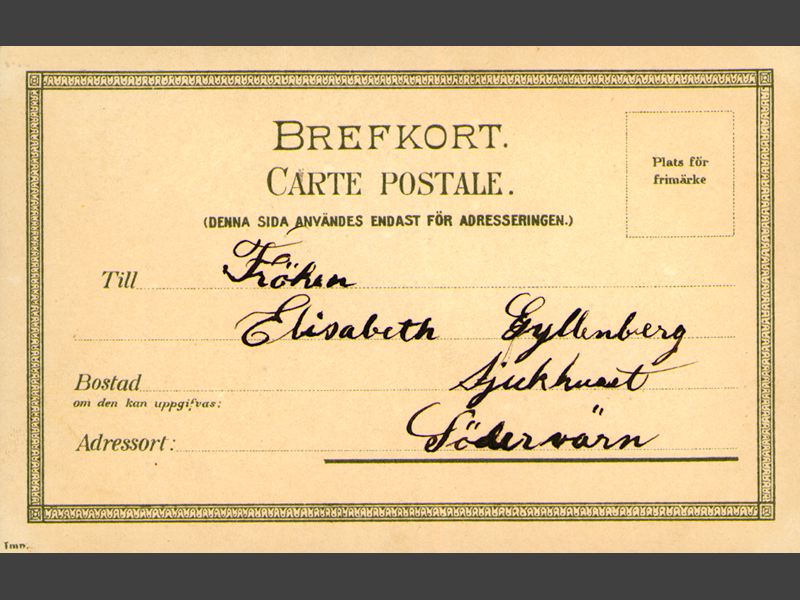 BREFKORT.
CARTE POSTALE.
(DENNA SIDA ANVÄNDES ENDAST FÖR ADRESSERINGEN.)
Plats för
frimärke
Till Fröken
Elisabeth Gyllenberg
Bostad Sjukhuset
om den kan uppgifvas:
Adressort: Södervärn
Imp.